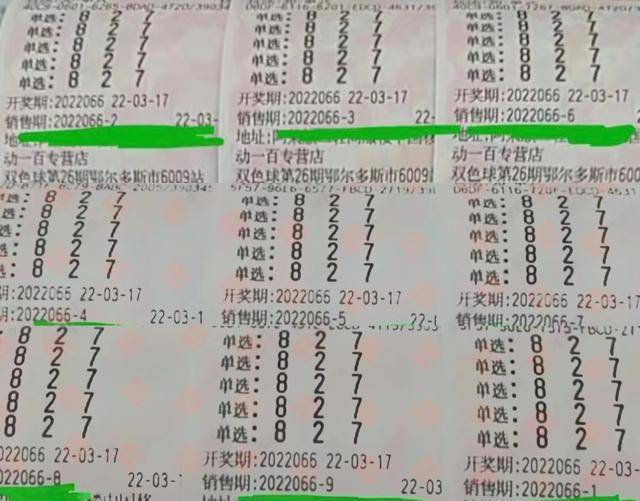 单选: 8 2 7
单选: 8 2 7
单选: 8 2 7
单选: 8 2 7
开奖期:2022066 22-03-17
销售期:2022066-2 22-03-
地址:
动一百专营店
双色球第26期鄂尔多斯市6009站
单选: 8 2 7
单选: 8 2 7
单选: 8 2 7
单选: 8 2 7
开奖期:2022066 22-03-17
销售期:2022066-3 22-
地址:
动一百专营店
双色球第26期鄂尔多斯市6009
单选: 8 2 7
单选: 8 2 7
单选: 8 2 7
单选: 8 2 7
开奖期:2022066 22-03-17
销售期:2022066-6
地址:
动一百专营店
双色球第26期鄂尔多斯市600
单选: 8 2 7
单选: 8 2 7
单选: 8 2 7
单选: 8 2 7
期:2022066 22-03-17
期:2022066-4 22-03-1
单选: 8 2 7
单选: 8 2 7
单选: 8 2 7
单选: 8 2 7
开奖期:2022066 22-03-17
销售期:2022066-5 22-
单选: 8 2 7
单选: 8 2 7
单选: 8 2 7
单选: 8 2 7
单选: 8 2 7
开奖期:2022066 22-03-17
销售期:2022066-7
8 2 7
8 2 7
8 2 7
8 2 7
8 2 7
2022066 22-03-17
2022066-8 22-03-1
单选: 8 2 7
单选: 8 2 7
单选: 8 2 7
单选: 8 2 7
单选: 8 2 7
开奖期:2022066 22-03-17
销售期:2022066-9 22-03
单选: 8 2 7
单选: 8 2 7
单选: 8 2 7
单选: 8 2 7
单选: 8 2 7
开奖期:2022066 22-03-17
销售期:2022066-1